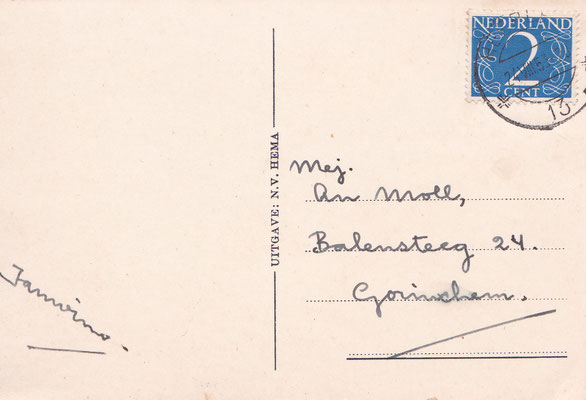 NEDERLAND
2
CENT
13
UITGAVE: N.V. HEMA
Mej.
An Moll,
Balensteeg 24.
Gorinchem.